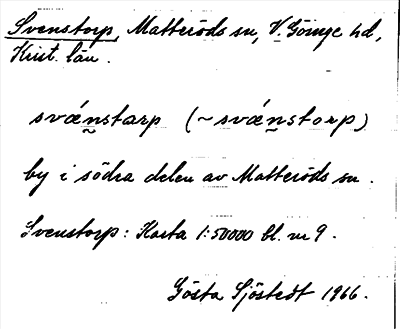 Svenstorp, Matteröds sn, V. Göinge hd,
Krist. län.
svǽn̰starp (~ svǽn̰storp)
by i södra delen av Matteröds sn.
Svenstorp: Karta 1:50000 bl. nr 9.
Gösta Sjöstedt 1966.